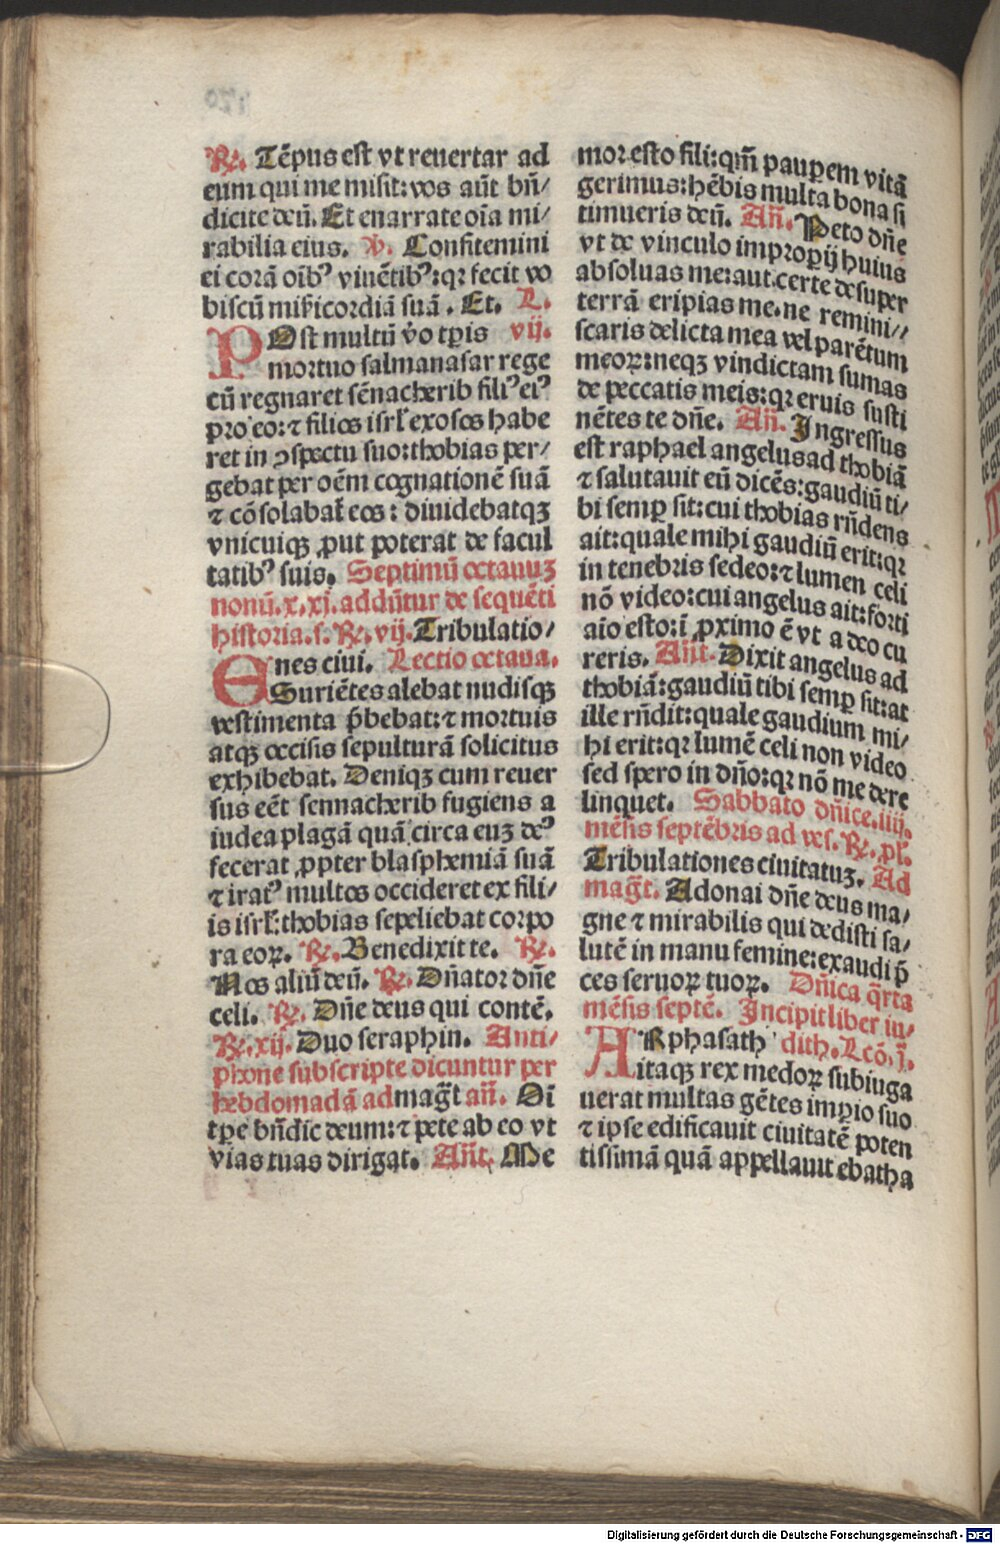 ℟. Tēpus est vt reuertar ad
eum qui me misit: vos aūt bn̄/
dicite deū. Et enarrate oīa mi/
rabilia eius. ℣. Confitemini
ei corā oībꝰ viuētibꝰ: qꝛ fecit vo
biscū mīꝛicordiā suā. Et. L.
POst multū v̄o tꝑis vij.
mortuo salmanasar rege
cū regnaret sēnacherib filiꝰ eiꝰ
pro eo: ⁊ filios isrl̄ exosos habe
ret in ꝯspectu suo: thobias per/
gebat per oēm cognationē suā
⁊ cōsolabat̄ eos: diuidebatqꝫ
vnicuiqꝫ ꝓut poterat de facul
tatibꝰ suis. Septimū octauuꝫ
nonū. x. xj. addūtur de sequēti
historia. s. ℟. vij. Tribulatio/
ESuriētes alebat nudisqꝫ
nes ciui. Lectio octaua.
vestimenta p̄bebat: ⁊ mortuis
atqꝫ occisis sepulturā solicitus
exhibebat. Deniqꝫ cum reuer
sus eēt sennacherib fugiens a
iudea plagā quā circa euꝫ deꝰ
fecerat ꝓpter blasphemiā suā
⁊ iratꝰ multos occideret ex fili/
is isrl̄: thobias sepeliebat corpo
ra eoꝝ. ℟. Benedixit te. ℟.
Nos aliū deū. ℟. Dn̄ator dn̄e
celi. ℟. Dn̄e deus qui contē.
℟. xij. Duo seraphin. Anti/
phone subscripte dicuntur per
hebdomadā ad mag̅t an̄. Oī
tꝑe bn̄dic deum: ⁊ pete ab eo vt
vias tuas dirigat. An̄t. Me
mor esto fili: qm̄ pauꝑem vitā
gerimus: hēbis multa bona si
timueris deū. An̄. Peto dn̄e
vt de vinculo improꝑij huius
absoluas me: aut certe desuper
terrā eripias me. ne remini//
scaris delicta mea vel parētum
meoꝝ: neqꝫ vindictam sumas
de peccatis meis: qꝛ eruis susti
nētes te dn̄e. An̄. Ingressus
est raphael angelus ad thobiā
⁊ salutauit eū dicēs: gaudiū ti/
bi semꝑ sit: cui thobias rn̄dens
ait: quale mihi gaudiū erit: qꝛ
in tenebris sedeo: ⁊ lumen celi
nō video: cui angelus ait: forti
aīo esto: ī ꝓximo ē vt a deo cu
reris. An̄t. Dixit angelus ad
thobiā: gaudiū tibi semꝑ sit: at
ille rn̄dit: quale gaudium mi/
hi erit: qꝛ lumē celi non video
sed spero in dn̄o: qꝛ nō me dere
linquet. Sabbato dn̄ice. iiij.
mēsis septēbris ad ves. ℟. pl̄.
Tribulationes ciuitatuꝫ. Ad
mag̅t. Adonai dn̄e deus ma/
gne ⁊ mirabilis qui dedisti sa/
lutē in manu femine: exaudi p̄
ces seruoꝝ tuoꝝ. Dn̄ica q̄rta
mēsis septē. Incipit liber iu/
ARphasath dith. Lcō. j.
itaqꝫ rex medoꝝ subiuga
uerat multas gētes imꝑio suo
⁊ ipse edificauit ciuitatē poten
tissimā quā appellauit ebatha
Digitalisierung gefördert durch die Deutsche Forschungsgemeinschaft - DFG